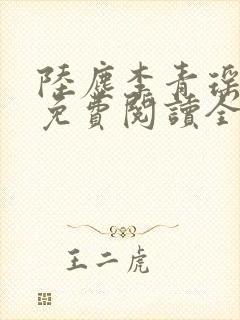 陸塵李青瑤
免費閱讀全
王二虎